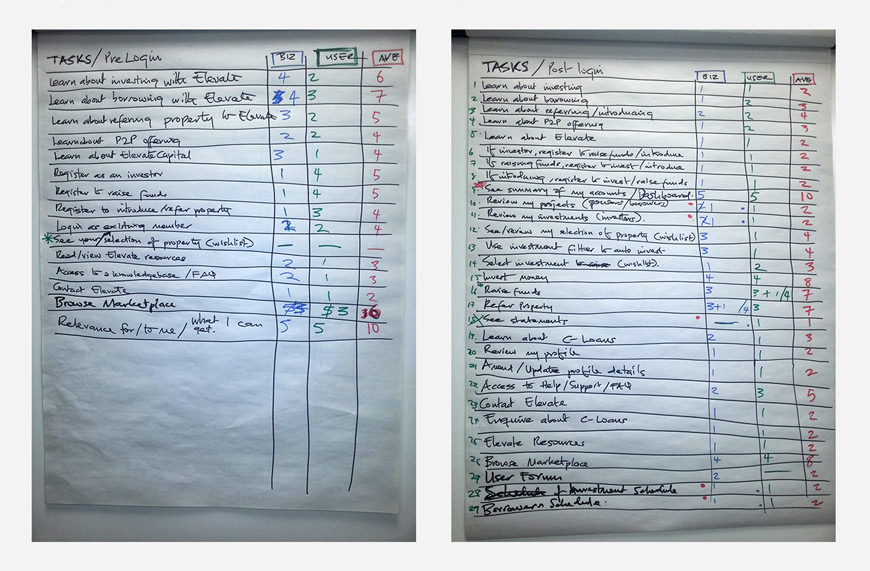 TASKS/Pre Login BIZ USER AVE
Learn about investing with Elevate 4 2 6
Learn about borrowing with Elevate 4 3 7
Learn about refering property to Elevate 3 2 5
Learn about P2P offering 2 2 4
Learn about Elevate Capital 3 1 4
Register as an investor 1 4 5
Register to raise funds 1 4 5
Register to introduce/refer property 1 3 4
Login as existing member 2 2 4
See your selection of property (wishlist) — — —
Read/view Elevate resources 2 1 3
Access to a knowledgebase/FAQ 2 1 3
Contact Elevate 1 1 2
Browse Marketplace 3 6
Relevance for/to me/ what I can get. 5 5 10
TASKS/Post login BIZ USER AVE
1 Learn about investing 1 1 2
2 Learn about borrowing 1 2 3
3 Learn about referring/introducing 2 2 4
4 Learn about P2P offering 1 2 3
5 Learn about Elevate 1 1 2
6 If investor, register to raise funds/introduce 1 1 2
7 If raising funds, register to invest/introduce 1 1 2
8 If introducing, register to invest/raise funds 1 1 2
9 See summary of my accounts/Dashboard 5 5 10
10 Review my projects (sponsors/borrowers) 1 1 2
11 Review my investments (investors). 1 1 2
12 See/review my selection of property (wishlist) 3 1 4
13 Use investment filter to auto invest 3 1 4
14 Select investment (wishlist). 1 2 3
15 Invest money 4 4 8
16 Raise funds 3 3+1/4 7
17 Refer Property 3+1/4 3 7
18 See statements — 1 1
19 Learn about C-Loans 2 1 3
20 Review my profile 1 1 2
21 Amend/Update profile details 1 1 2
22 Access to Help/Support/FAQ 2 3 5
23 Contact Elevate 1 1 2
24 Enquire about C-Loans 1 1 2
25 Elevate Resources 1 1 2
26 Browse Marketplace 4 4 8
27 User Forum 2 — 2
28 Investment Schedule 1 1 2
29 Borrowers Schedule. 1 1 2